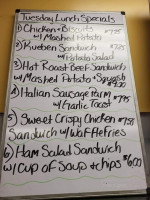 Tuesday Lunch Specials
1) Chicken + Biscuits
w/ Mashed Potato $7.95
2) Rueben Sandwich
w/ Potato Salad
3) Hot Roast Beef Sandwich
w/ Mashed Potato + Squash
4) Italian Sausage Parm
w/ Garlic Toast $7.95
5) Sweet Crispy Chicken
Sandwich w/ Waffle Fries
6) Ham Salad Sandwich
w/ Cup of Soup + Chips $6.00